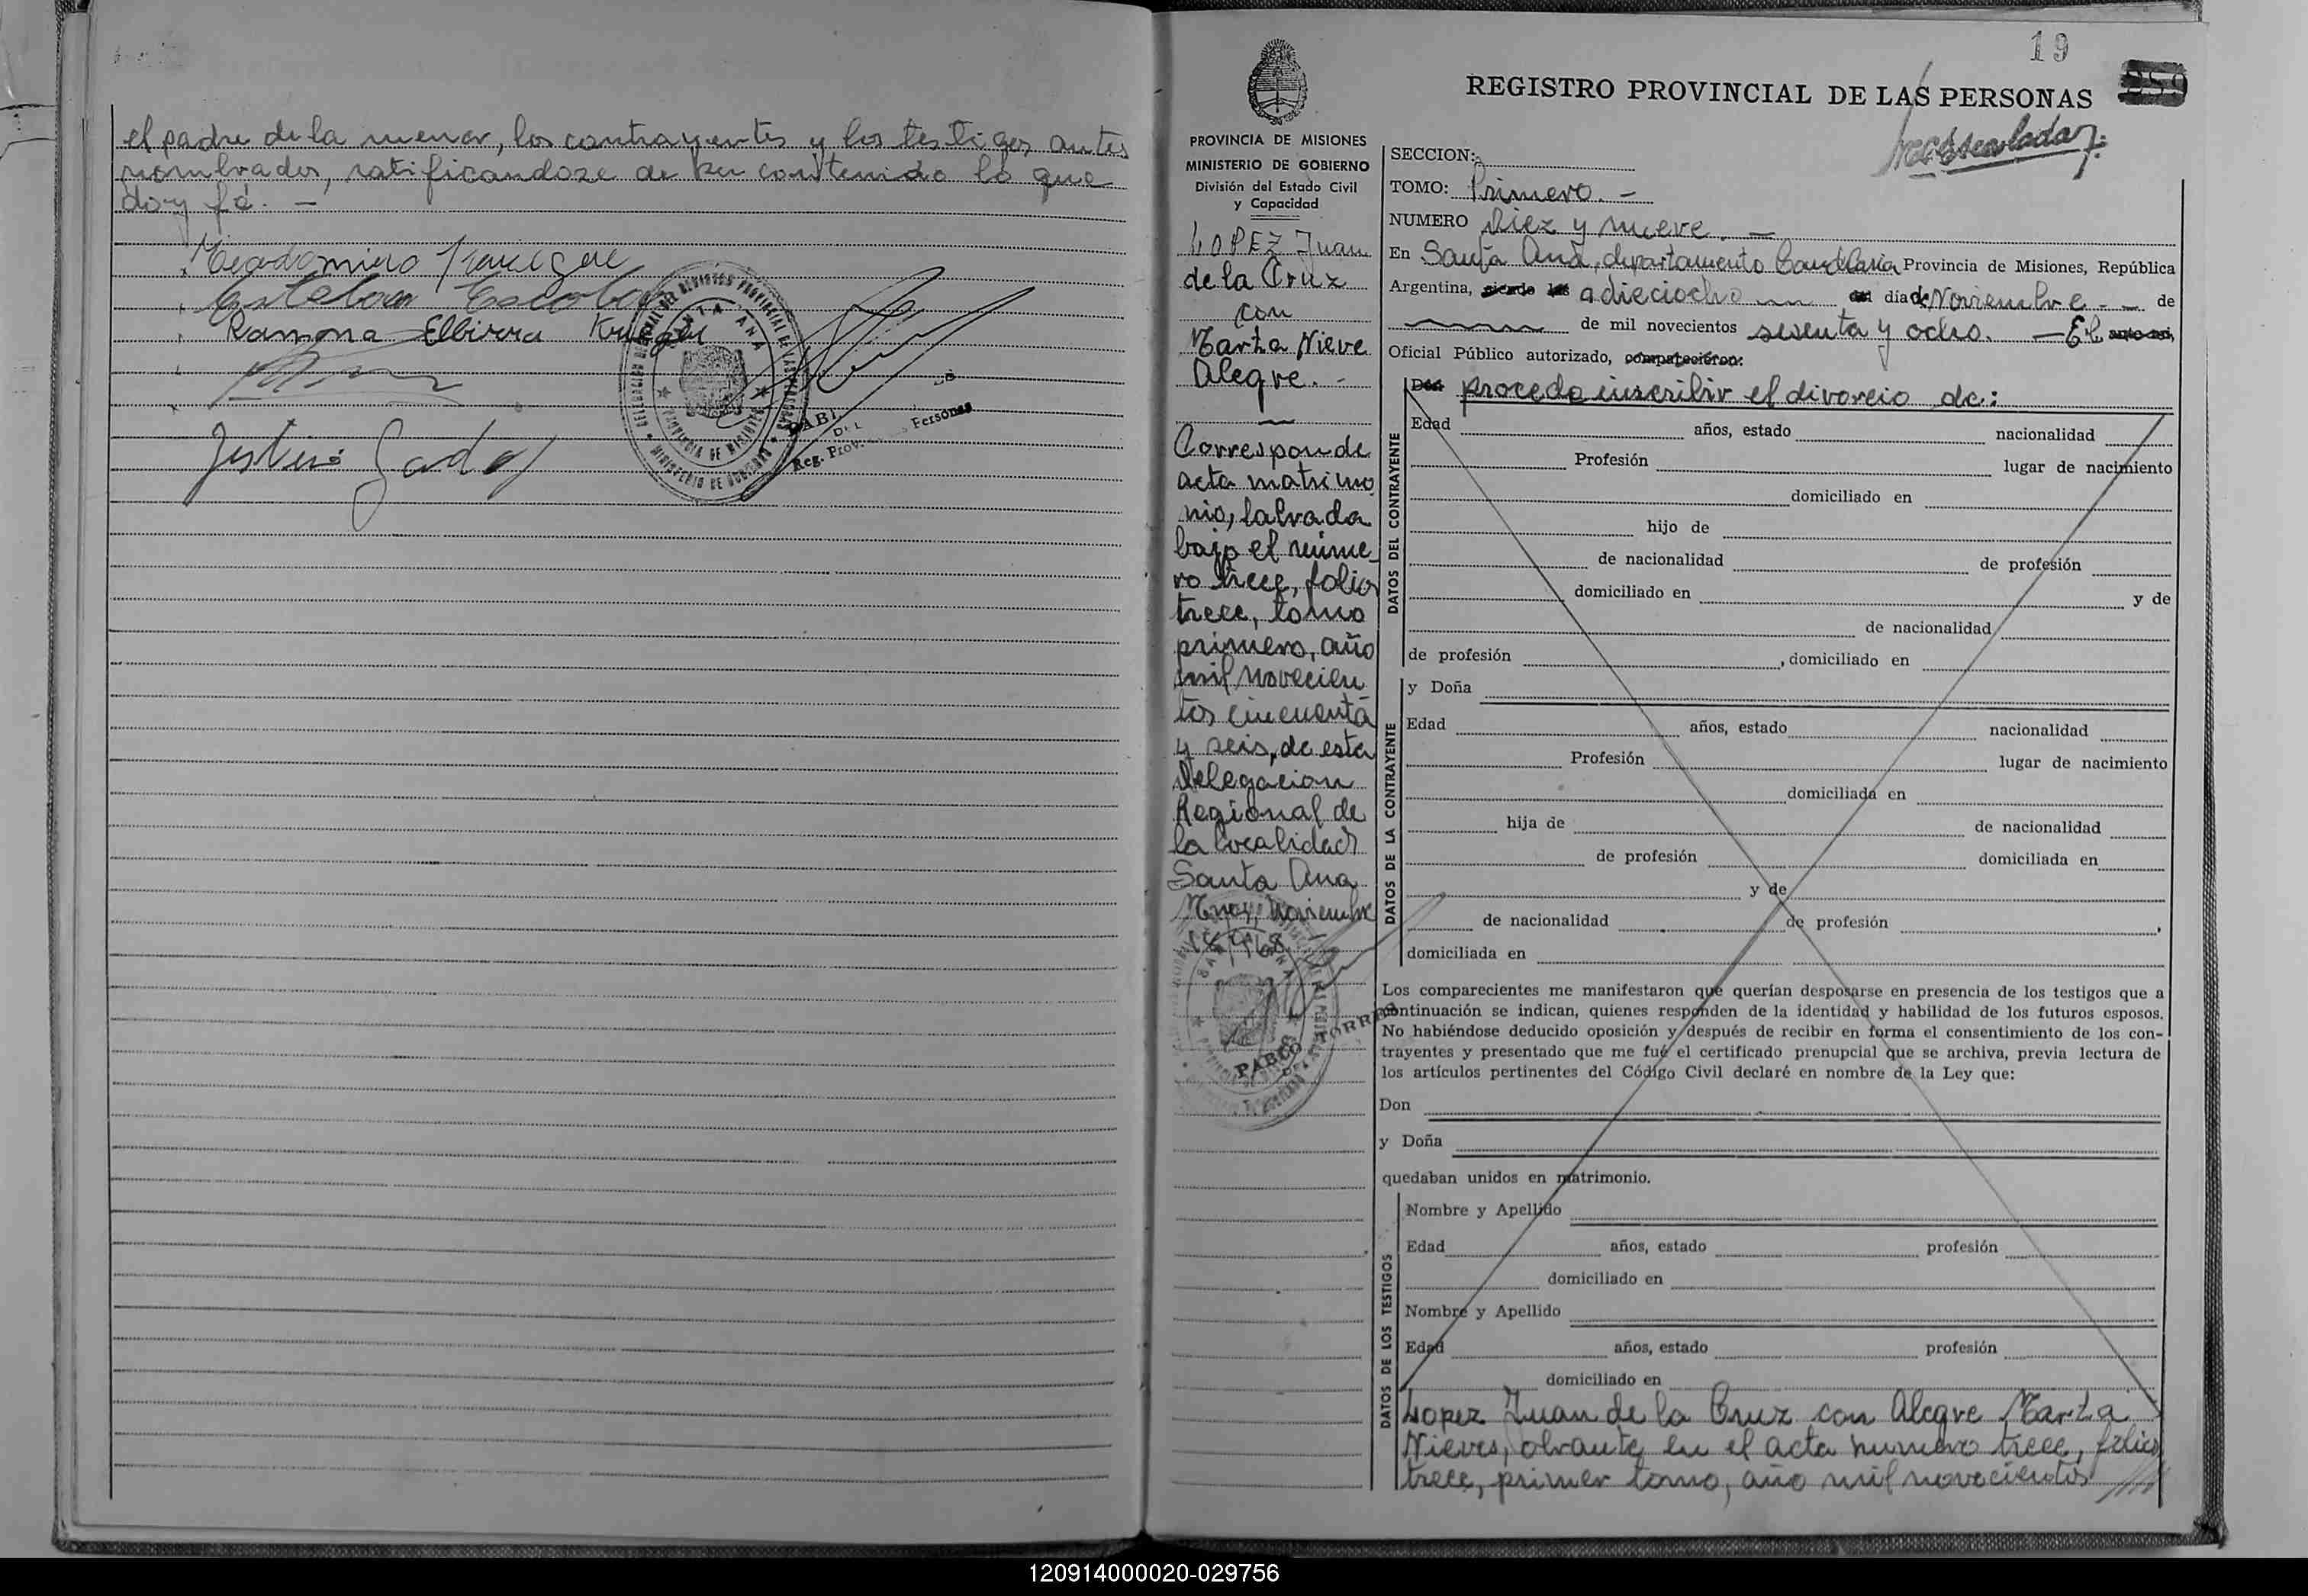 el padre de la menor, los contrayentes y los testigos antes
nombrados, ratificandose de su contenido lo que
doy fé. —
Esteban Escobar
Ramona Elbirra
19
REGISTRO PROVINCIAL DE LAS PERSONAS
PROVINCIA DE MISIONES
MINISTERIO DE GOBIERNO
División del Estado Civil
y Capacidad
LOPEZ Juan
de la Cruz
con
Marta Nieve
Alegre. -
Corresponde
acta matrimo
nio, labrada
bajo el núme
ro trece, folio
trece, tomo
primero, año
mil novecien
tos cincuenta
y seis, de esta
Delegacion
Regional de
la localidad
Santa Ana
Mnes, Noviembre
18/968
PABLO TORRES
SECCION:
TOMO: Primero. -
NUMERO Diez y nueve. —
En Santa Ana, departamento Candelaria Provincia de Misiones, República
Argentina, siendo las a dieciocho del día de Noviembre - - de
de mil novecientos sesenta y ocho. — El ante mi,
Oficial Público autorizado, comparecieron:
Don procedo inscribir el divorcio de:
DATOS DEL CONTRAYENTE
Edad años, estado nacionalidad
Profesión lugar de nacimiento
domiciliado en
hijo de
de nacionalidad de profesión
domiciliado en y de
de nacionalidad
de profesión , domiciliado en
y Doña
DATOS DE LA CONTRAYENTE
Edad años, estado nacionalidad
Profesión lugar de nacimiento
domiciliada en
hija de de nacionalidad
de profesión domiciliada en
y de
de nacionalidad de profesión ,
domiciliada en
Los comparecientes me manifestaron que querían desposarse en presencia de los testigos que a
continuación se indican, quienes responden de la identidad y habilidad de los futuros esposos.
No habiéndose deducido oposición y después de recibir en forma el consentimiento de los con-
trayentes y presentado que me fué el certificado prenupcial que se archiva, previa lectura de
los artículos pertinentes del Código Civil declaré en nombre de la Ley que:
Don
y Doña
quedaban unidos en matrimonio.
DATOS DE LOS TESTIGOS
Nombre y Apellido
Edad años, estado profesión
domiciliado en
Nombre y Apellido
Edad años, estado profesión
domiciliado en
Lopez Juan de la Cruz con Alegre Marta
Nieves, obrante en el acta numero trece, folio
trece, primer tomo, año mil novecientos
120914000020-029756